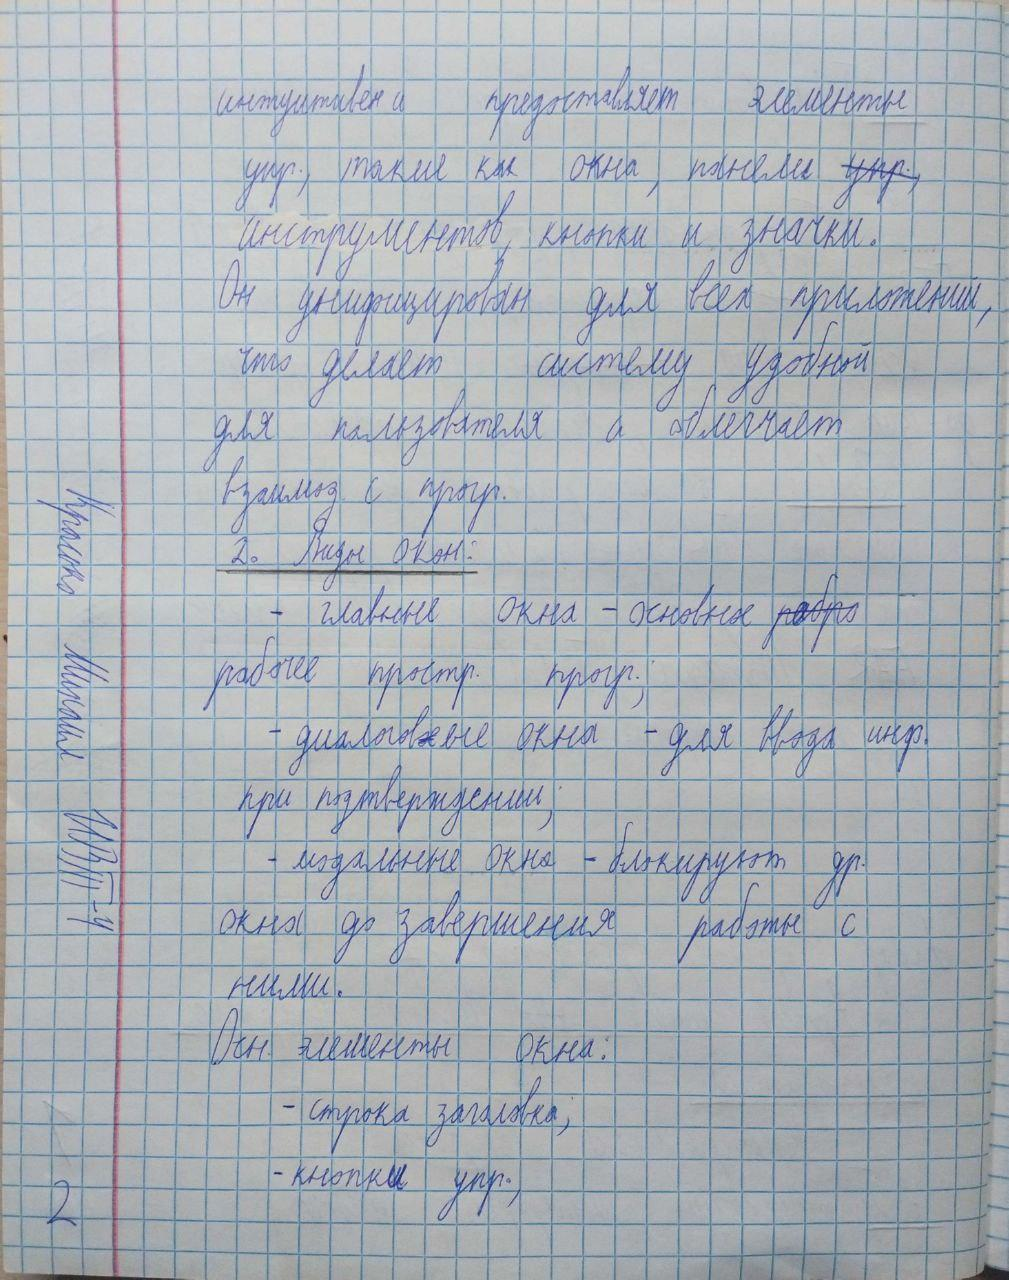 интуитивен и предоставляет элементы
упр., такие как окна, панели упр.,
инструментов, кнопки и значки.
Он унифицирован для всех приложений,
что делает систему удобной
для пользователя и облегчает
взаимод с прогр.
2. Виды окон:
- главные окна - основное рабро
рабочее простр. прогр.;
- диалоговые окна - для ввода инф.
при подтверждении;
- модальные окна - блокируют др.
окна до завершения работы с
ними.
Осн. элементы окна:
- строка заголовка;
- кнопки упр.;
Михаил
2